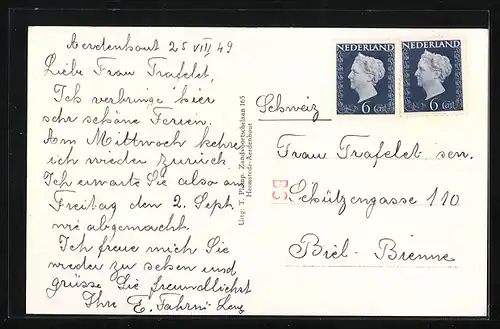 Aerdenhout 25 VIII 49
Liebe Frau Trafelet,
Ich verbringe hier
sehr schöne Ferien.
Am Mittwoch kehre
ich wieder zurück
Ich erwarte Sie also am
Freitag den 2. Sept.
wie abgemacht.
Ich freue mich Sie
wieder zu sehen und
grüsse Sie freundlichst
Ihre E. Fahrni
Uitg. T. Zandvoortschelaan 165
Heemstede-Aerdenhout
NEDERLAND
6 CENT
NEDERLAND
6 CENT
Schweiz
Frau Trafelet sen.
Schützengasse 110
Biel-Bienne